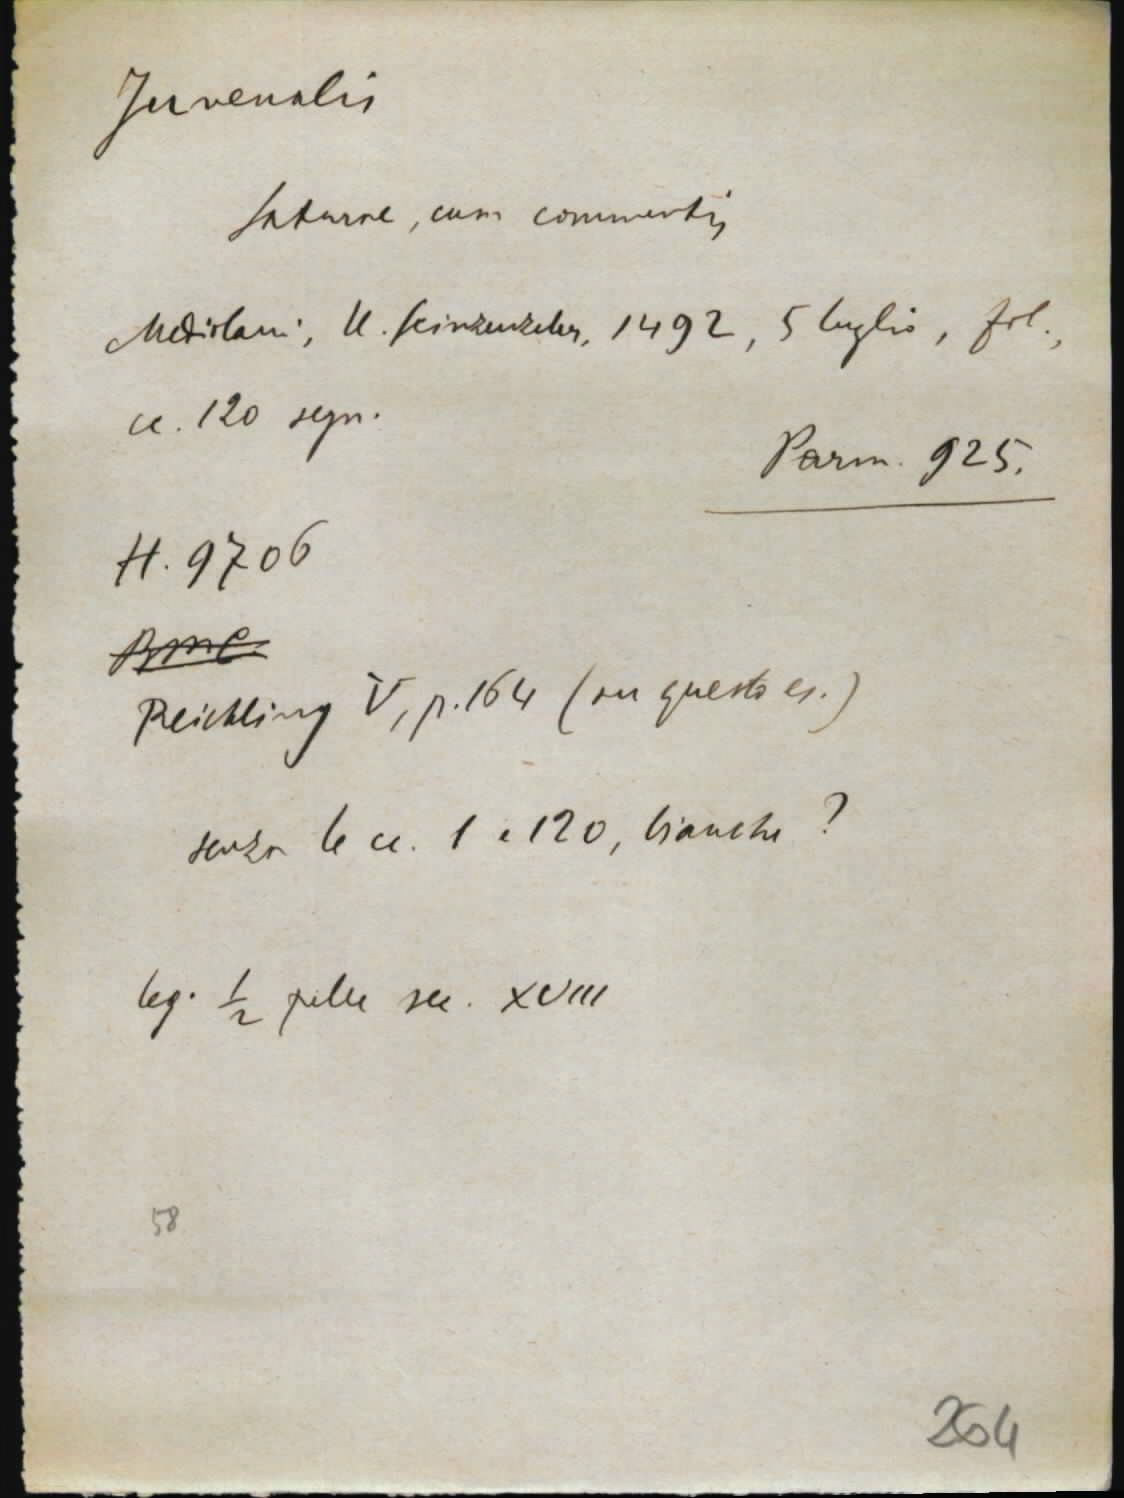 Juvenalis
Saturae, cum commentis
Mediolani, U. Scinzenzeler, 1492, 5 luglio, fol.,
cc. 120 segn.
Parm. 925.
H. 9706
BMC
Reichling V, p. 164 (su questo es.)
senza le cc. 1 e 120, bianche ?
leg. 1/2 pelle sec. XVIII
58
264